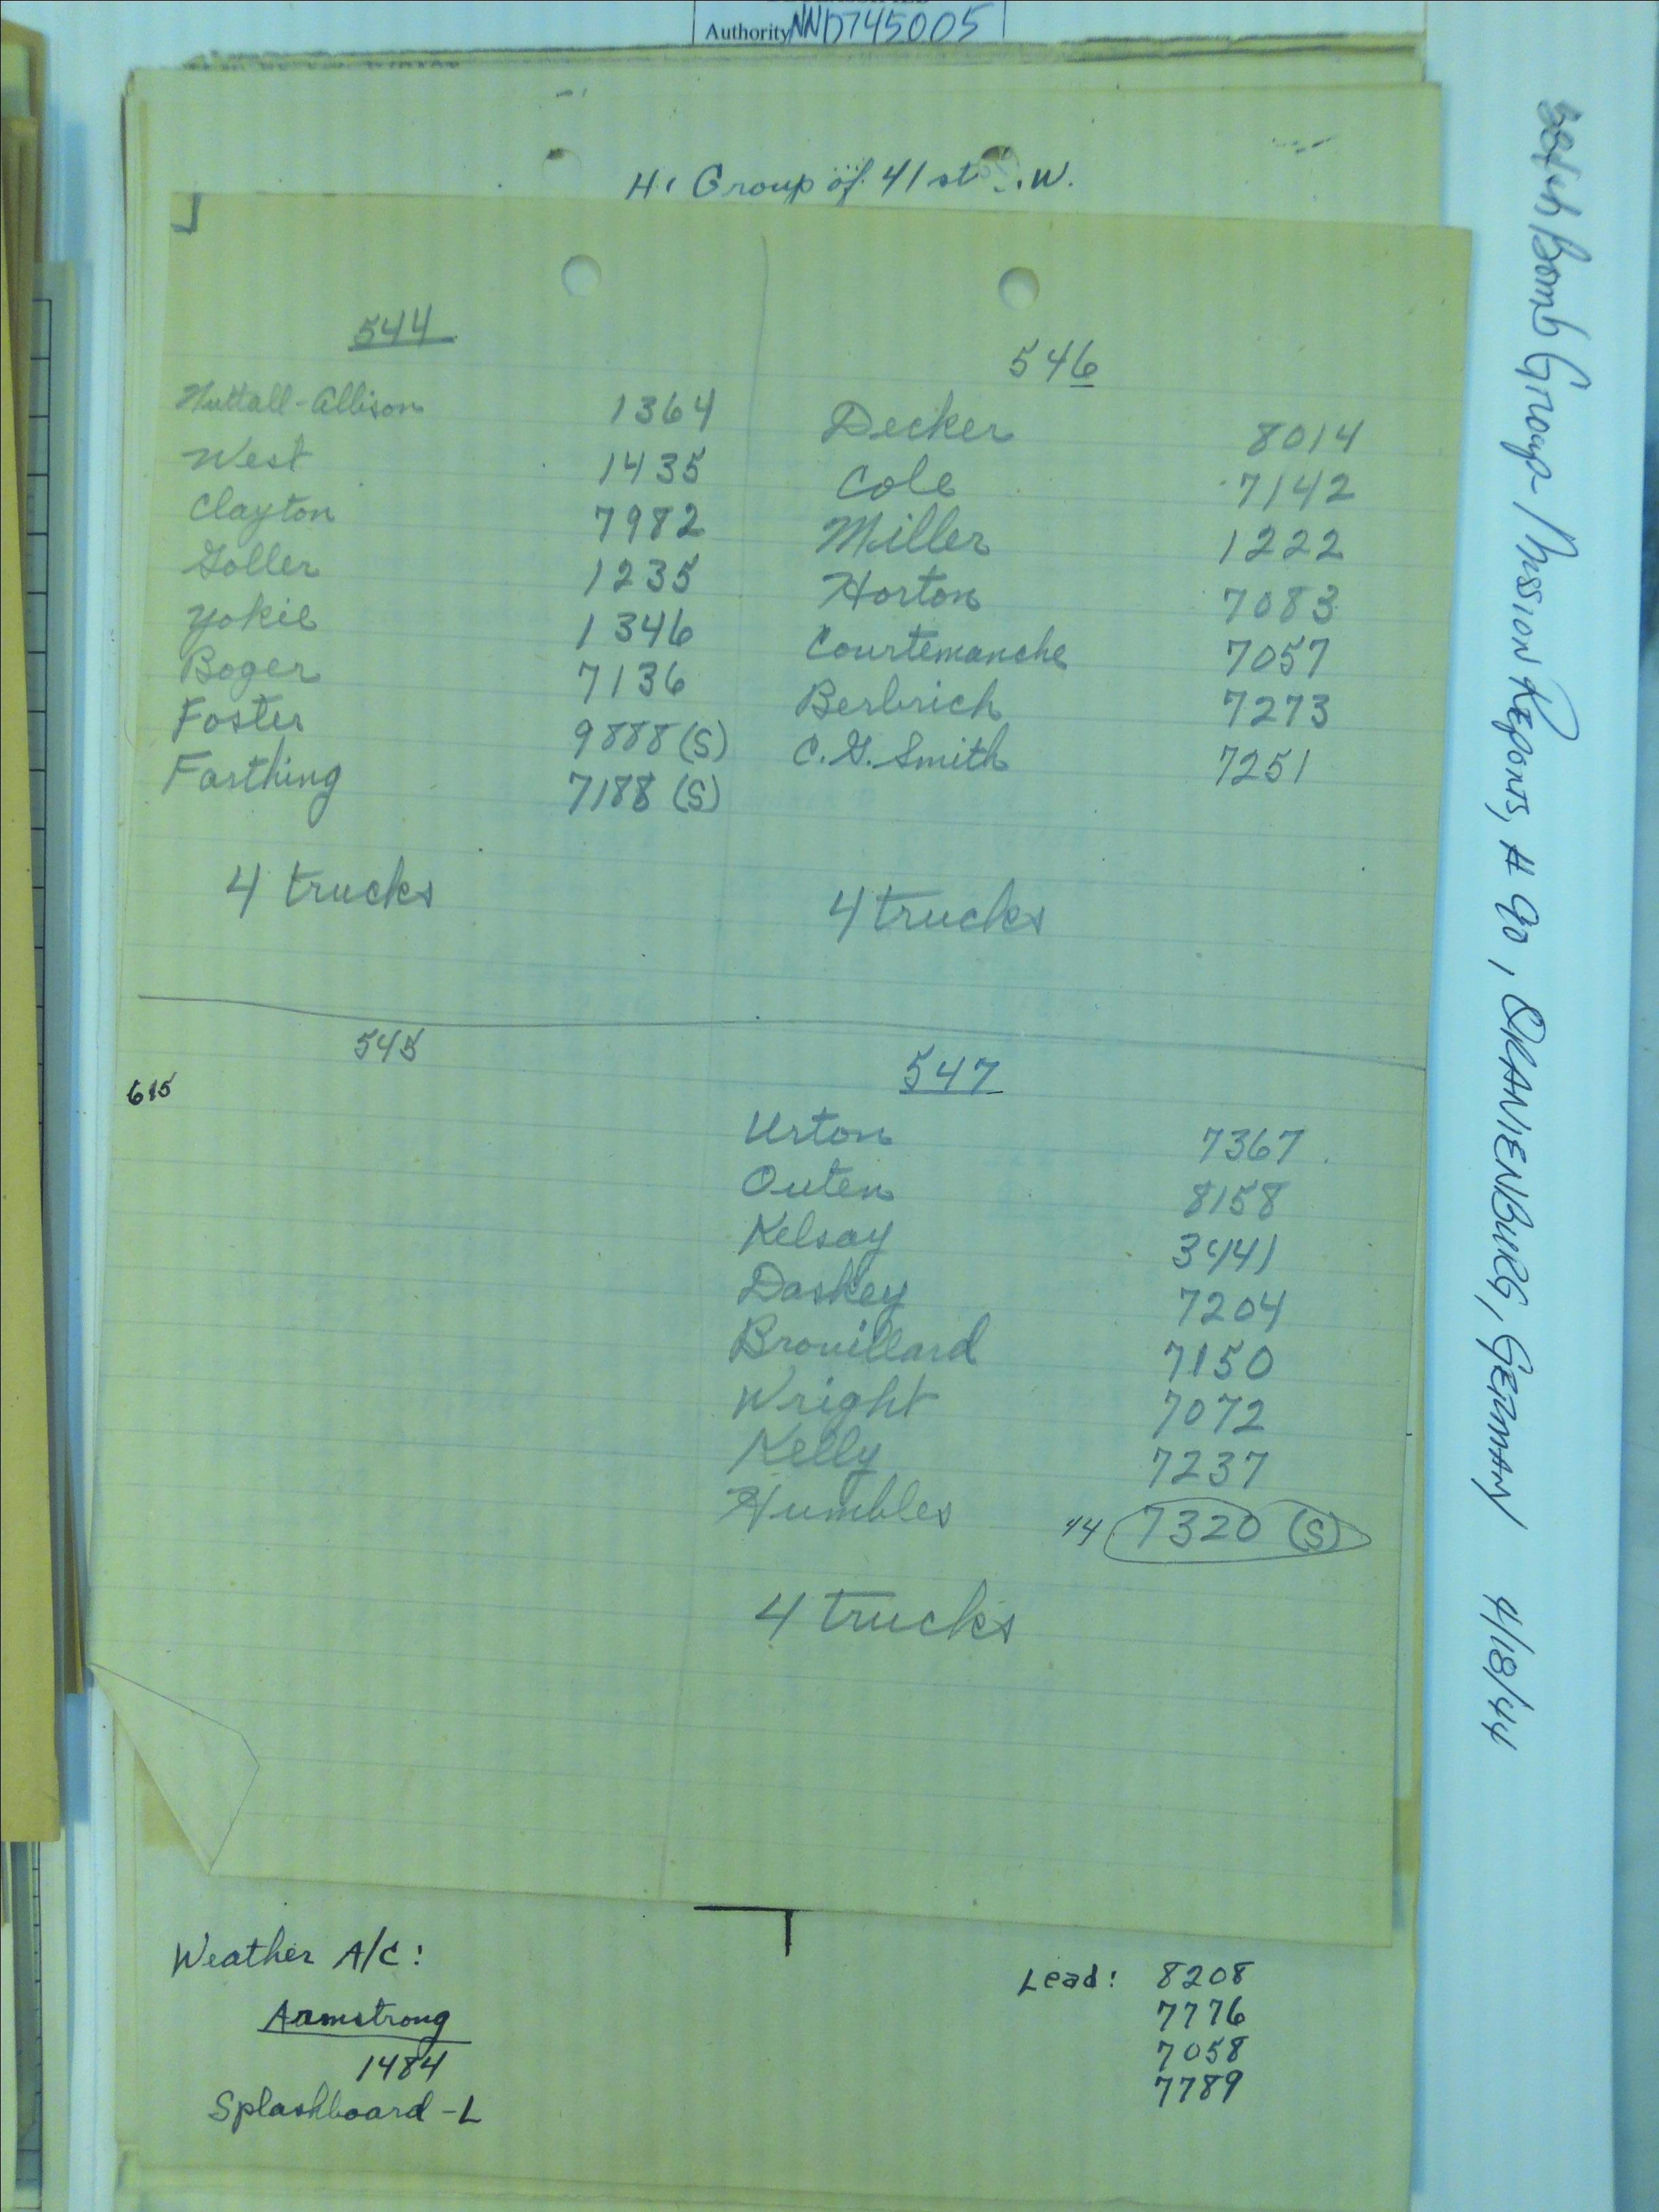 Authority NND745005
Hi Group of 41st W.
544
Nuttall-Allison 1364
West 1435
Clayton 7982
Goller 1235
Yokie 1346
Boger 7136
Foster 9888 (S)
Farthing 7188 (S)
4 trucks
546
Decker 8014
Cole 7142
Miller 1222
Horton 7083
Courtemanche 7057
Berbrich 7273
C. G. Smith 7251
4 trucks
545
615
547
Urton 7367
Outen 8158
Kelsay 3441
Daskey 7204
Brouillard 7150
Wright 7072
Kelly 7237
Humbles 44 7320 (S)
4 trucks
Weather A/C:
Armstrong
1484
Splashboard-L
Lead: 8208
7776
7058
7789
384th Bomb Group Mission Reports, # 90, ORANIENBURG, GERMANY 4/18/44